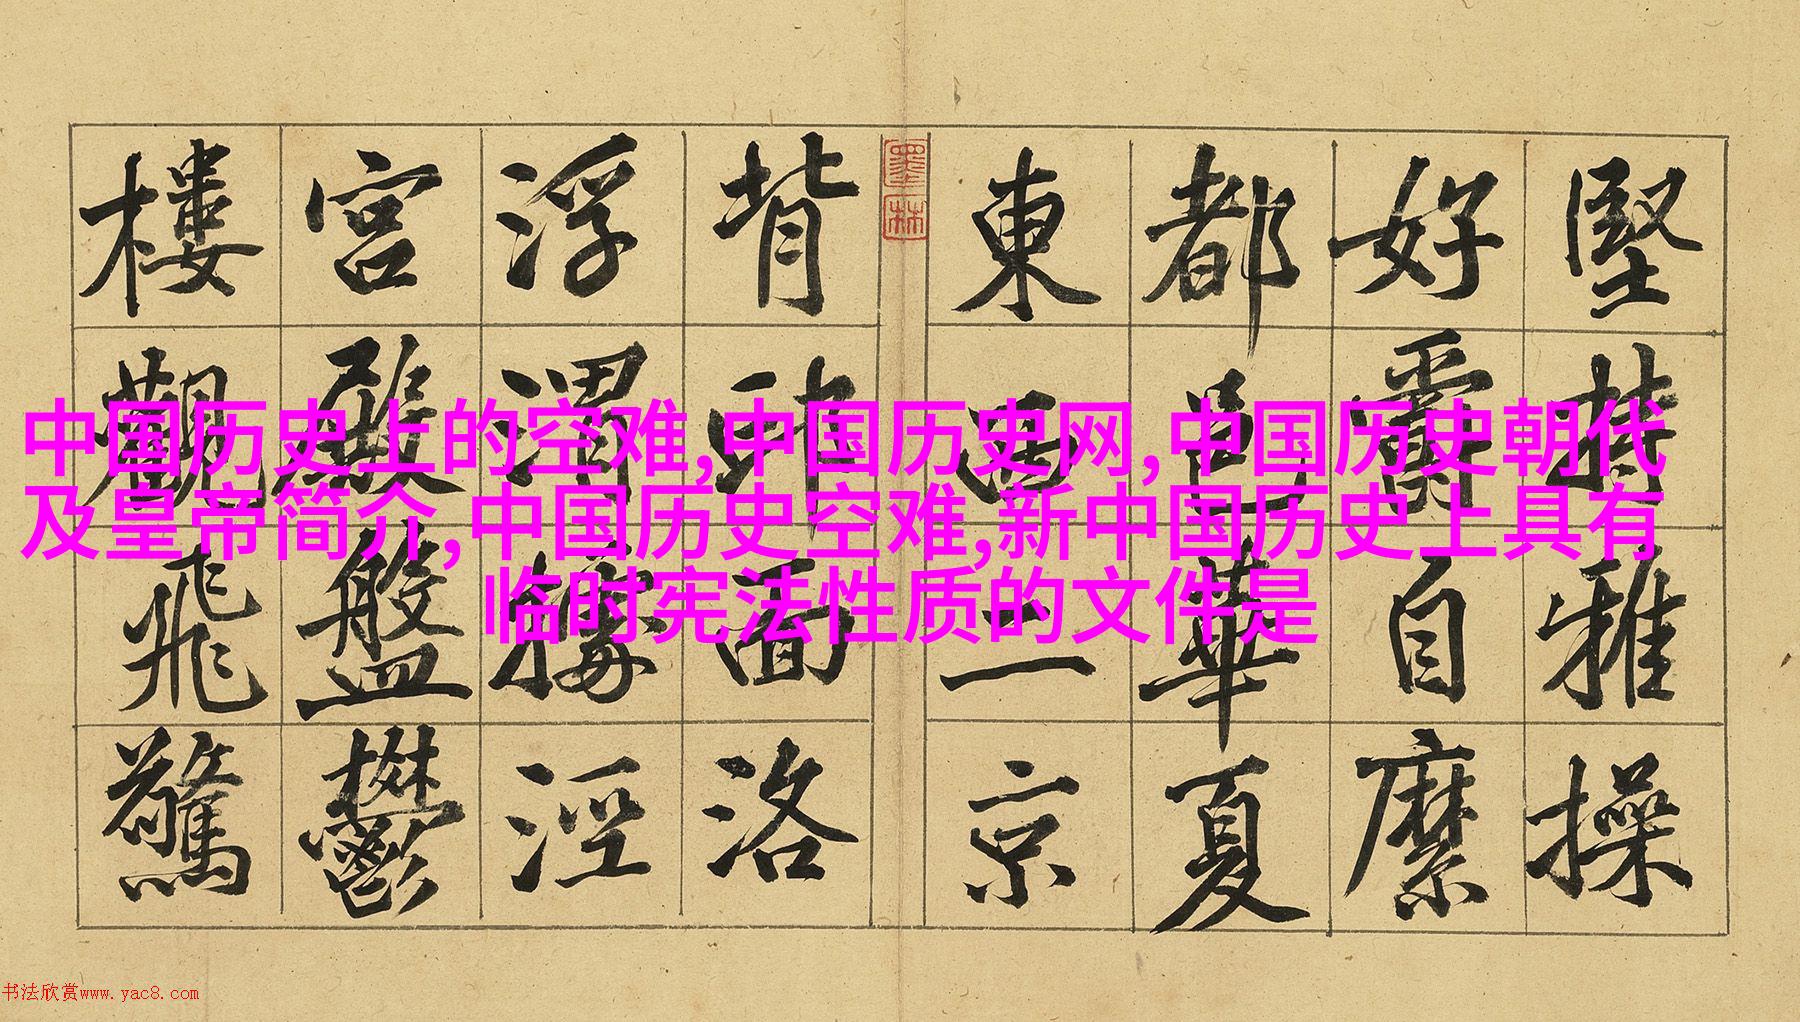 堅持雅操
好爵自縻
都邑華夏
東西二京
墨林
背邙面洛
浮渭據涇
宮殿盤鬱
樓觀飛驚
中国历史上的空难,中国历史网,中国历史朝代
及皇帝简介,中国历史空难,新中国历史上具有
临时宪法性质的文件是
书法欣赏www.yac8.com